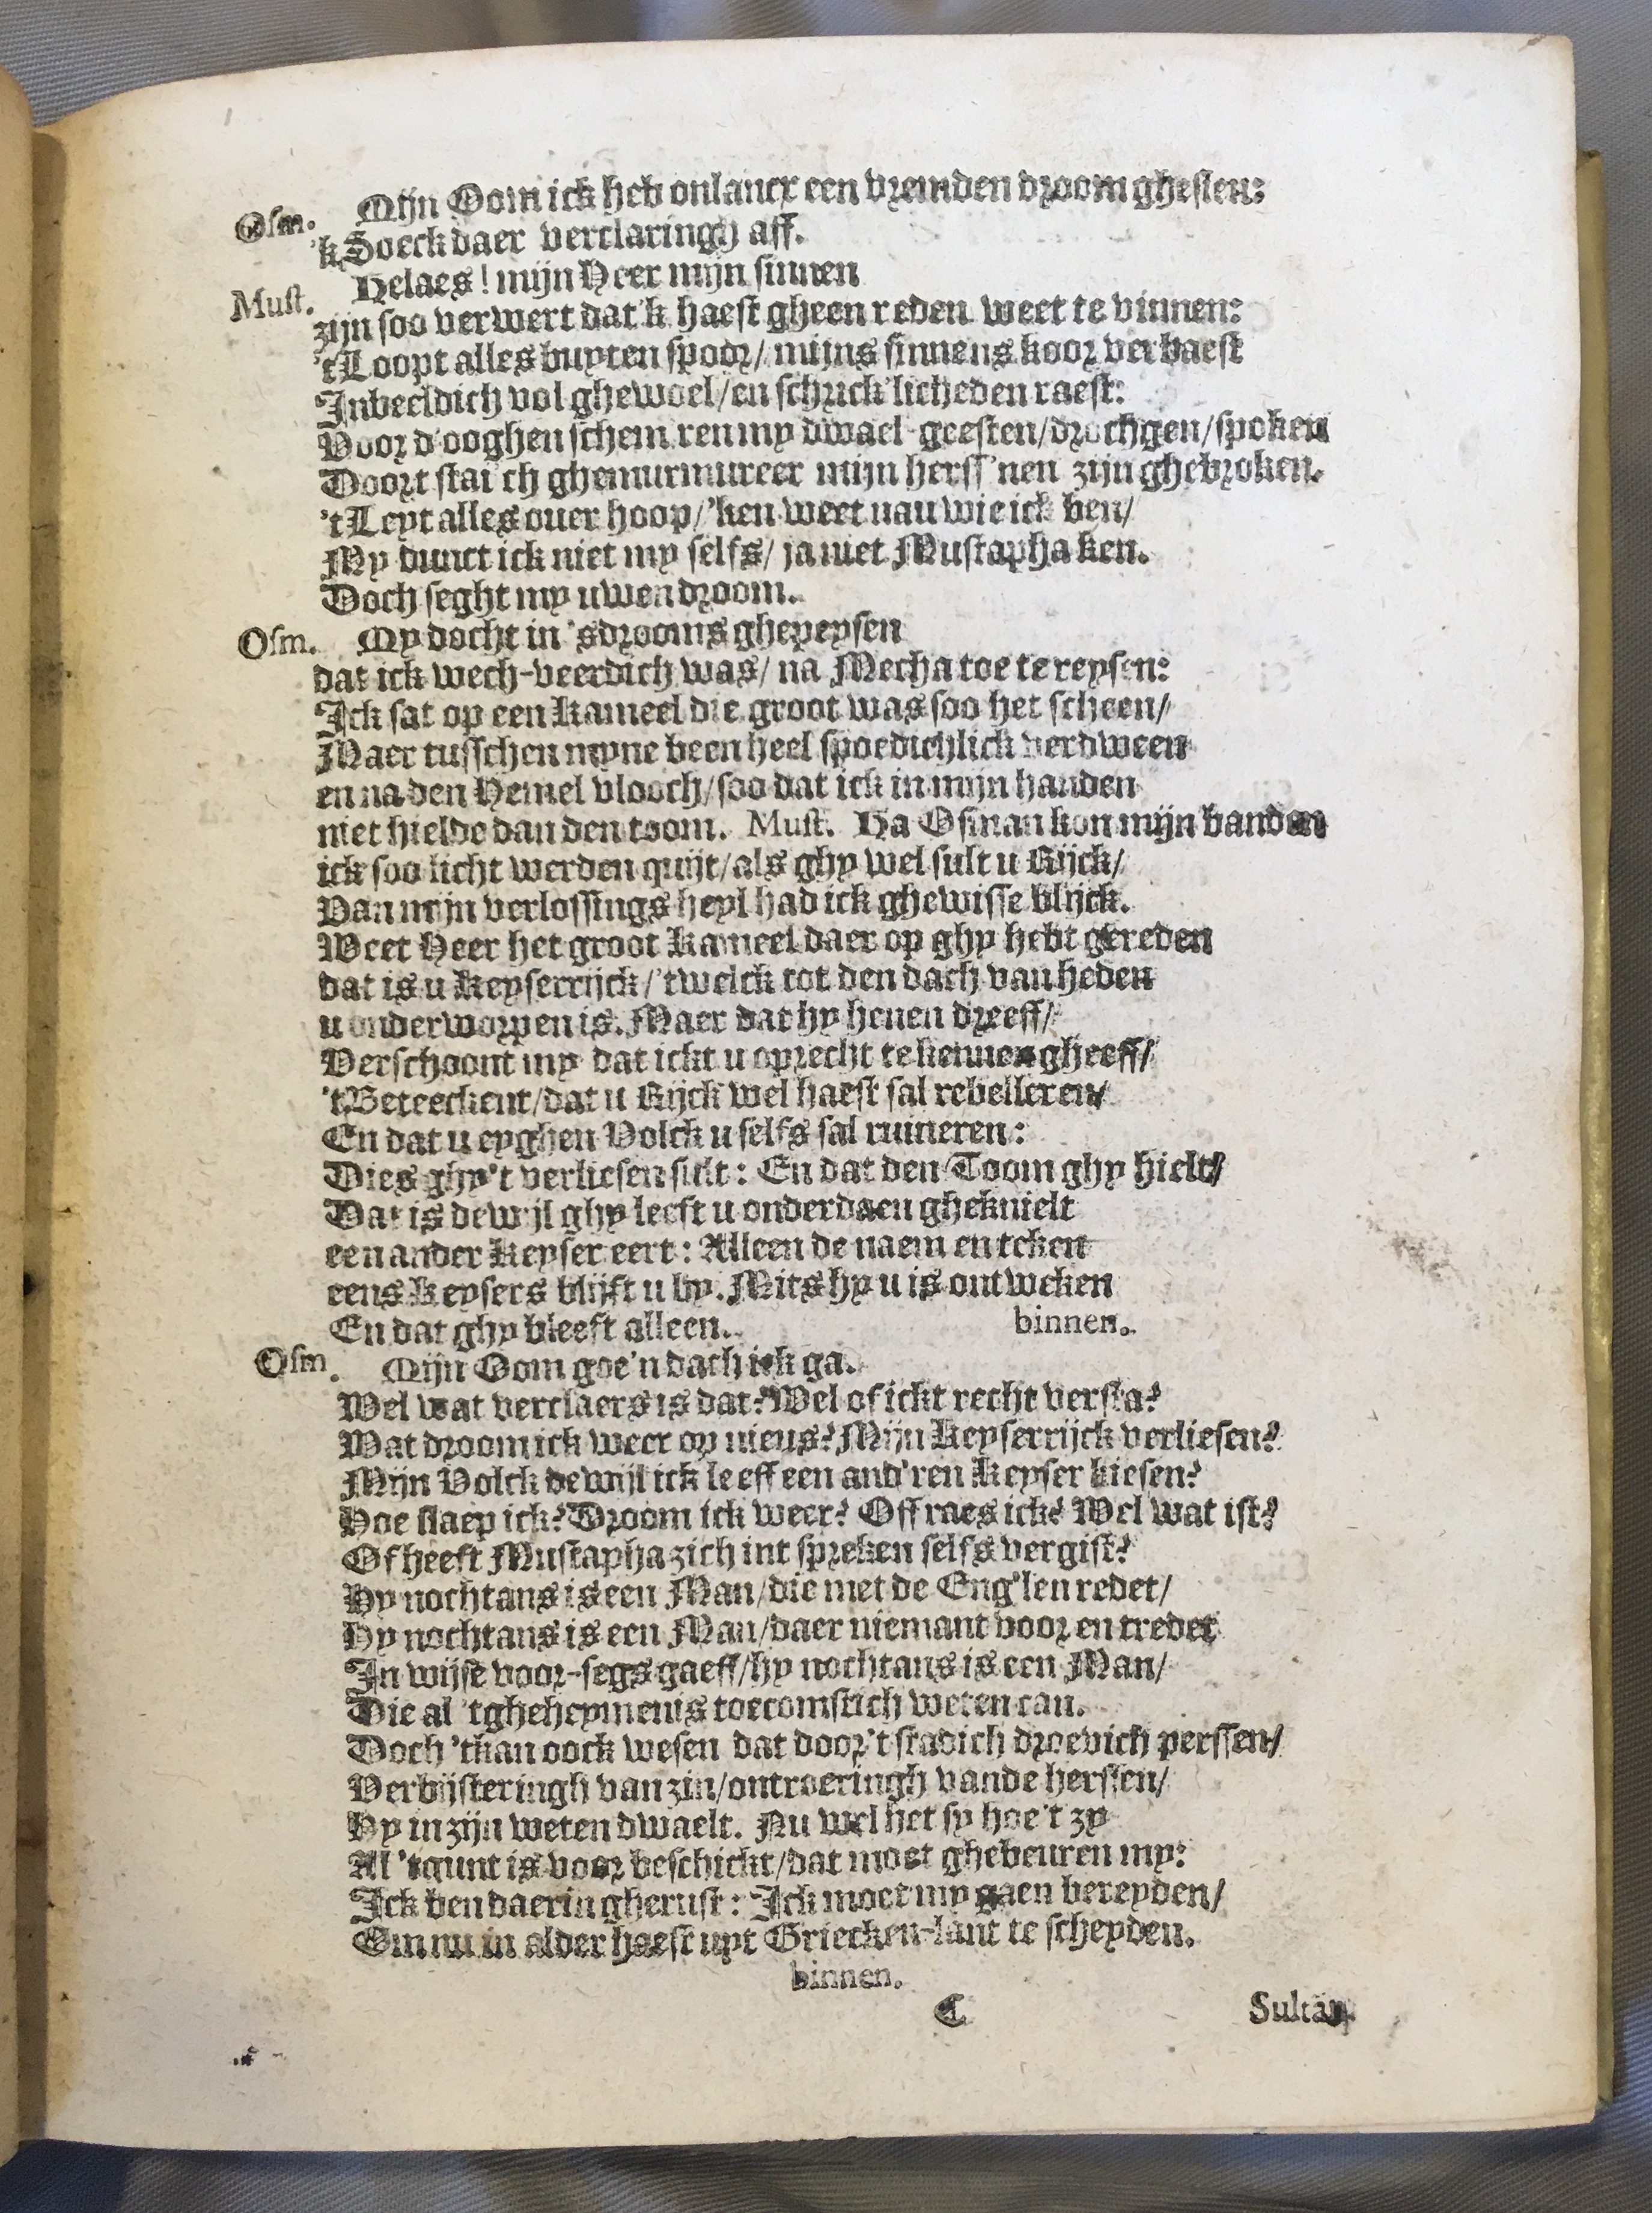 Osm. Mijn Oom ick heb onlancx een vremden droom ghesien:
'k Soeck daer verclaringh aff.
Must. Helaes! mijn Heer mijn sinnen
zijn soo verwert dat 'k haest gheen reden weet te vinnen:
't Loopt alles buyten spoor/ mijns sinnens koor verbaest
Inbeeldich vol ghewoel/ en schrick'licheden raest:
Voor d'ooghen schem'ren my dwael-geesten/ drochgen/ spoken
Doort staich ghemurmureer mijn herss'nen zijn ghebroken.
't Leyt alles over hoop/ 'ken weet nau wie ick ben/
My dunct ick niet my selfs/ ja niet Mustapha ken.
Doch seght my uwen droom.
Osm. My docht in 'sdrooms ghepeysen
dat ick wech-veerdich was/ na Mecha toe te reysen:
Ick sat op een Kameel die groot was soo het scheen/
Maer tusschen myne been heel spoedichlick verdween
en na den Hemel vlooch/ soo dat ick in mijn handen
niet hielde dan den toom. Must. Ha Osman kon mijn banden
ick soo licht werden quijt/ als ghy wel sult u Rijck/
Van mijn verlossings heyl had ick ghewisse blijck.
Weet Heer het groot Kameel daer op ghy hebt gereden
dat is u Keyserrijck/ 'twelck tot den dach van heden
u onderworpen is. Maer dat hy henen dreeff/
Verschoont my dat ickt u oprecht te kennen gheeff/
't Beteeckent/ dat u Rijck wel haest sal rebelleren/
En dat u eyghen Volck u selfs sal ruineren:
Dies ghy 't verliesen sult: En dat den Toom ghy hielt/
Dat is dewijl ghy leeft u onderdaen gheknielt
een ander Keyser eert: Alleen de naem en teken
eens Keysers blijft u by. Mits hy u is ontweken
En dat ghy bleeft alleen. binnen.
Osm. Mijn Oom goe'n dach ick ga.
Wel wat verclaers is dat? Wel of ickt recht versta?
Wat droom ick weer op nieus? Mijn Keyserrijck verliesen?
Mijn Volck dewijl ick leeff een and'ren Keyser kiesen?
Hoe slaep ick? Droom ick weer? Off raes ick? Wel wat ist?
Of heeft Mustapha zich int spreken selfs vergist?
Hy nochtans is een Man/ die met de Eng'len redet/
Hy nochtans is een Man/ daer niemant voor en tredet
In wijse voor-segs gaeff/ hy nochtans is een Man/
Die al 'tgheheymenis toecomstich weten can.
Doch 'tkan oock wesen dat door 't stadich droevich perssen/
Verbijsteringh van zin/ ontroeringh vande herssen/
Hy in zijn weten dwaelt. Nu wel het sy hoe 't zy
Al 'tgunt is voor beschickt/ dat moet ghebeuren my:
Ick ben daerin gherust: Ick moet my gaen bereyden/
Om nu in alder haest uyt Griecken-lant te scheyden.
binnen.
C Sultan